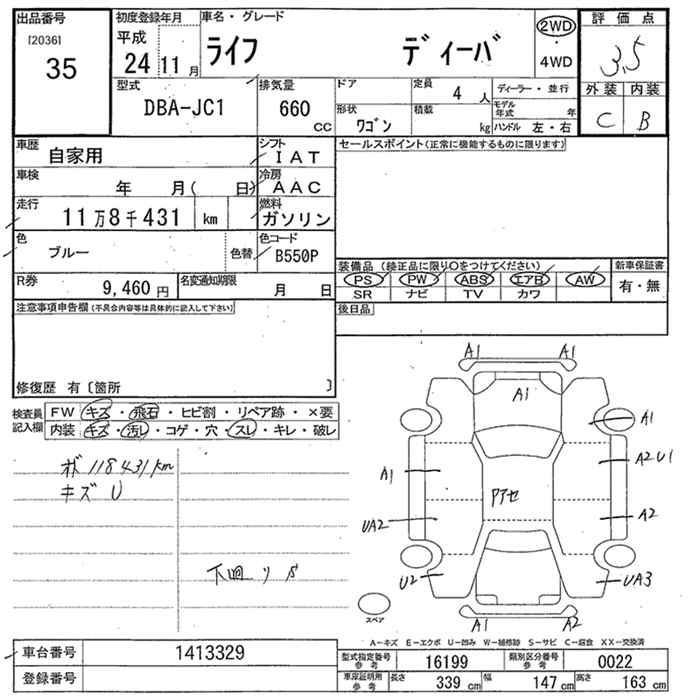 出品番号
[2036]
35
初度登録年月
平成
24 11月
車名・グレード
ライフ ディーバ
2WD
・
4WD
評価点
3.5
外装 内装
C B
型式
DBA-JC1
排気量
660
cc
ドア
定員
4 人
ディーラー・並行
形状
ワゴン
積載
kg
モデル年式 年
ハンドル 左・右
車歴
自家用
シフト
IAT
車検
年 月( 日)
冷房
AAC
走行
11万8千431 km
燃料
ガソリン
色
ブルー
色替
色コード
B550P
R券
9,460円
名変通知期限
月 日
セールスポイント(正常に機能するものに限ります)
装備品 (純正品に限り○をつけてください)
新車保証書
PS PW ABS エアB AW
有・無
SR ナビ TV カワ
後日品
注意事項申告欄(不具合内容等は具体的に記入して下さい)
修復歴 有〔箇所 〕
検査員記入欄
FW キズ・飛石・ヒビ割・リペア跡・×要
内装 キズ・汚レ・コゲ・穴・スレ・キレ・破レ
118431km
キズ U
下廻りS
A1 A1
A1
A1
A2 U1
A1
アセ
UA2
A2
U2
UA3
スペア
A1 A2
A-キズ E-エクボ U-凹み W-補修跡 S-サビ C-腐食 XX-交換済
車台番号
1413329
登録番号
型式指定番号
参考
16199
類別区分番号
参考
0022
車庫証明用
参考
長さ 339 cm
幅 147 cm
高さ 163 cm